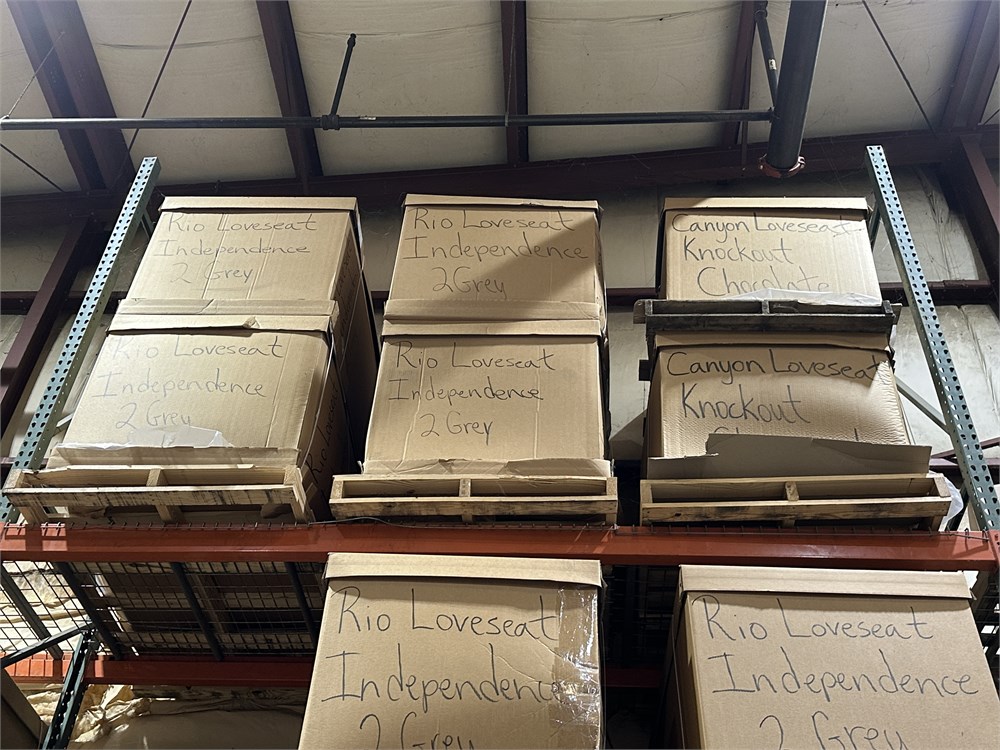 Rio Loveseat
Independence
2 Grey
Rio Loveseat
Independence
2 Grey
Canyon Loveseat
Knockout
Chocolate
Rio Loveseat
Independence
2 Grey
Rio Loveseat
Independence
2 Grey
Canyon Loveseat
Knockout
Rio Lov
Rio Loveseat
Independence
2 Grey
Rio Loveseat
Independence
2 Grey